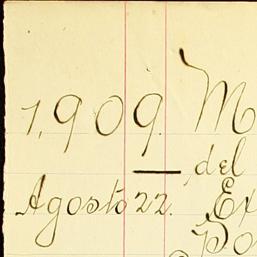 1,909. M
del
Agosto 22. Ex
Po